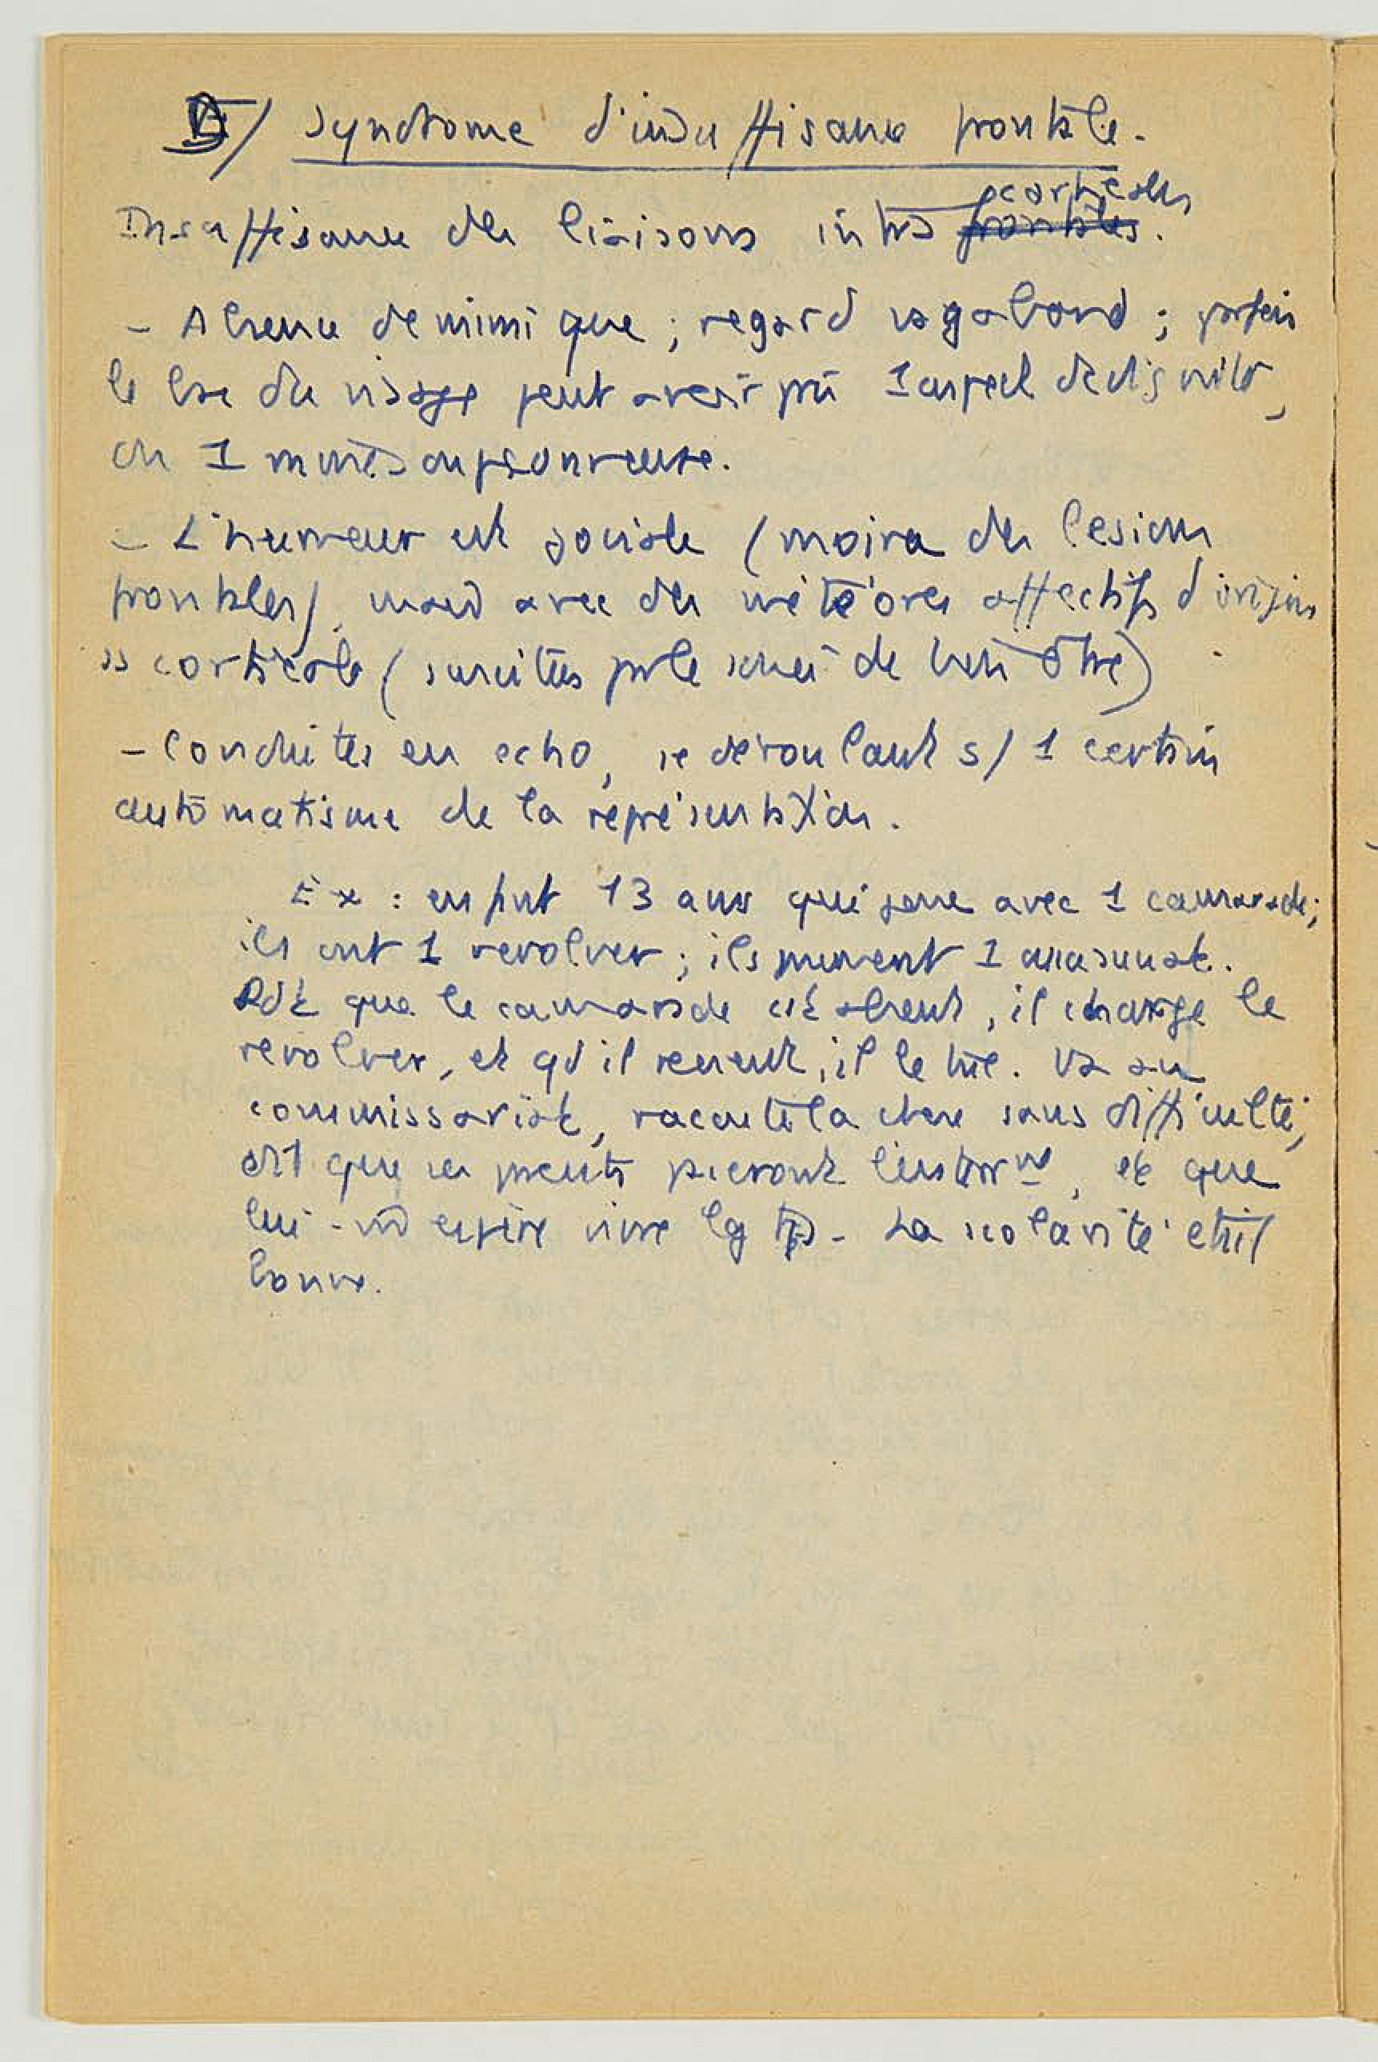 D/ Syndrome d'insuffisance frontale.
Insuffisance des liaisons intra corticales frontales.
- Absence de mimique ; regard vagabond ; parfois
le bas du visage peut avoir pfs 1 aspect de dignité,
ou 1 moue soupçonneuse.
- L'humeur est joviale (moira des lésions
frontales), mais avec des météores affectifs d'origine
ss corticale (suscités par le souci de bien-être)
- Conduites en écho, se déroulant s/ 1 certain
automatisme de la représentation.
Ex : enfant 13 ans qui joue avec 1 camarade ;
ils ont 1 revolver ; ils miment 1 assassinat.
Pdt que le camarade est absent, il charge le
revolver, et qd il revient, il le tue. Va au
commissariat, raconte la chose sans difficulté ;
dit que ses parents paieront l'enterrnt, et que
lui-m espère vivre lg tps. La scolarité était
bonne.